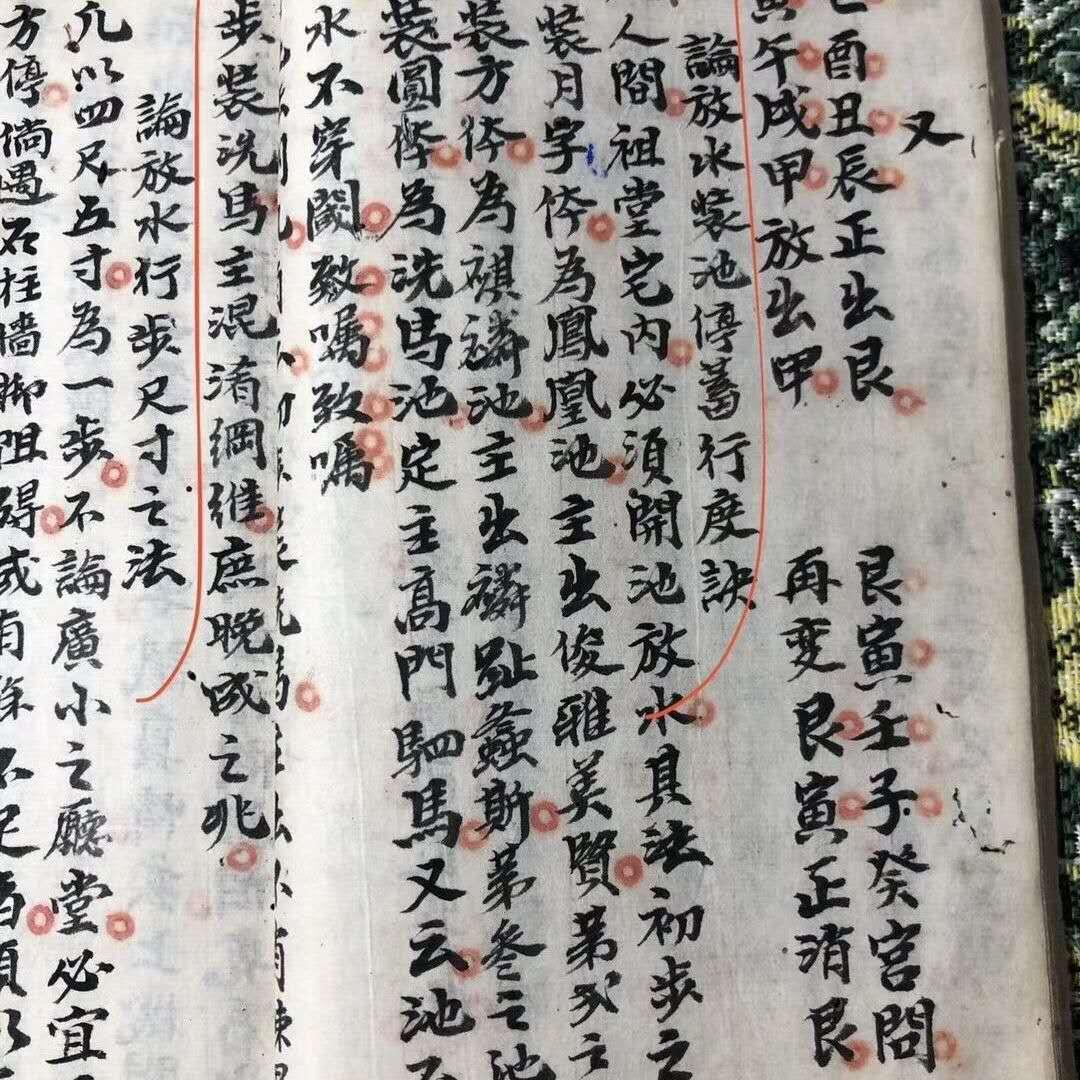 又
酉丑辰正出艮
艮寅壬子癸宮問
午戌甲放出甲
再变艮寅正消艮
論放水裝池停蓄行度訣
人間祖堂宅內必須開池放水具法初步之
裝月字体為鳳凰池主出俊雅美賢第弍之
裝方体為麒麟池主出麟趾螽斯第叁之池
裝圓体為洗馬池定主高門駟馬又云池
水不穿闕致嘱致嘱
步裝洗馬主混淆綱維庶晚成之兆
論放水行步尺寸之法
凡以四尺五寸為一步不論廣小之廳堂必宜
方停倘遇石柱墻脚阻碍或有餘不足者須以